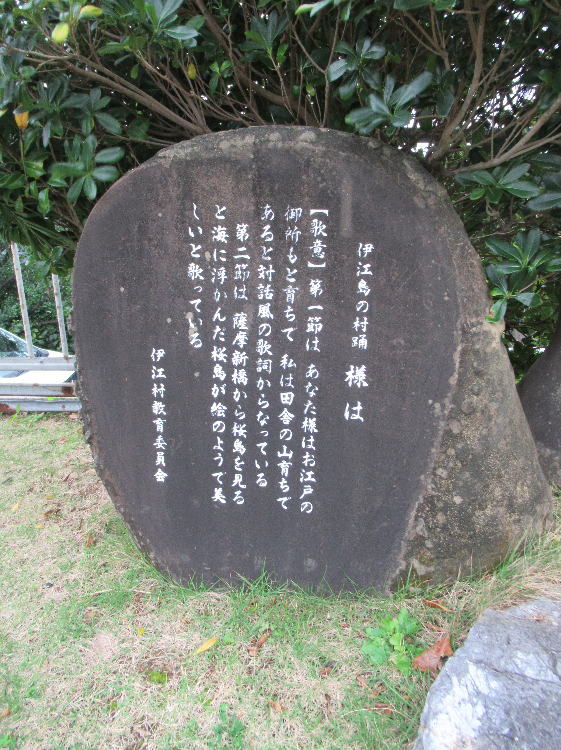 伊江島の村踊 様は
【歌意】第一節は あなた様はお江戸の
御所もと育ちで 私は田舎の山育ちで
あると対話風の歌詞からなっている
第二節は 薩摩新橋から桜島を見る
と海に浮かんだ桜島が絵のようで美
しいと歌っている
伊江村教育委員会